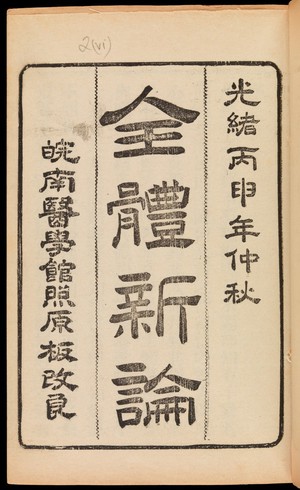 2(vi)
光緒丙申年仲秋
全體新論
皖南醫學館照原板改良